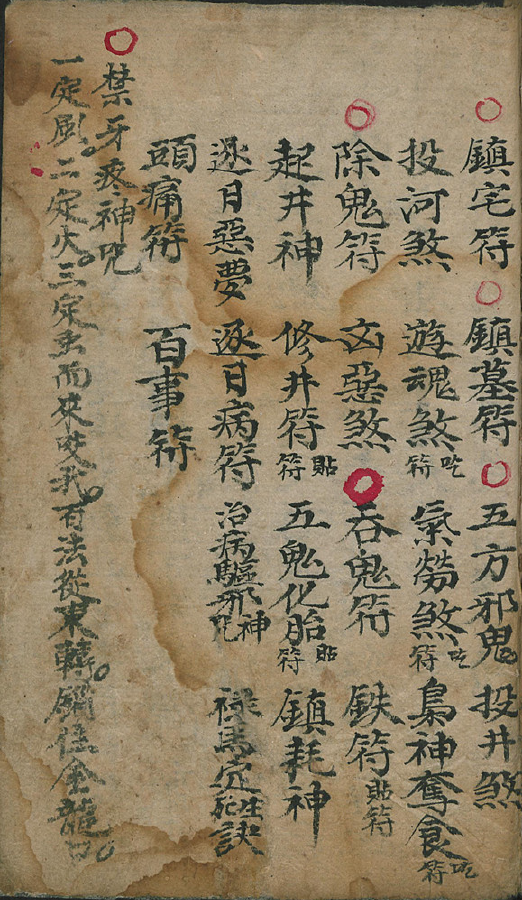 鎮宅符 鎮墓符 五方邪鬼 投井煞
投河煞 遊魂煞吃符 氣勞煞吃符 梟神奪食吃符
除鬼符 凶惡煞 吞鬼符 鉄符貼符
起井神 修井符貼符 五鬼化胎貼符 鎮耗神
逐月惡夢 逐日病符 治病驅邪神咒 祿馬定生死訣
頭痛符 百事符
禁牙疼神咒
一定風二定火三定虫而來咬我有法從東轉鎖住金龍口